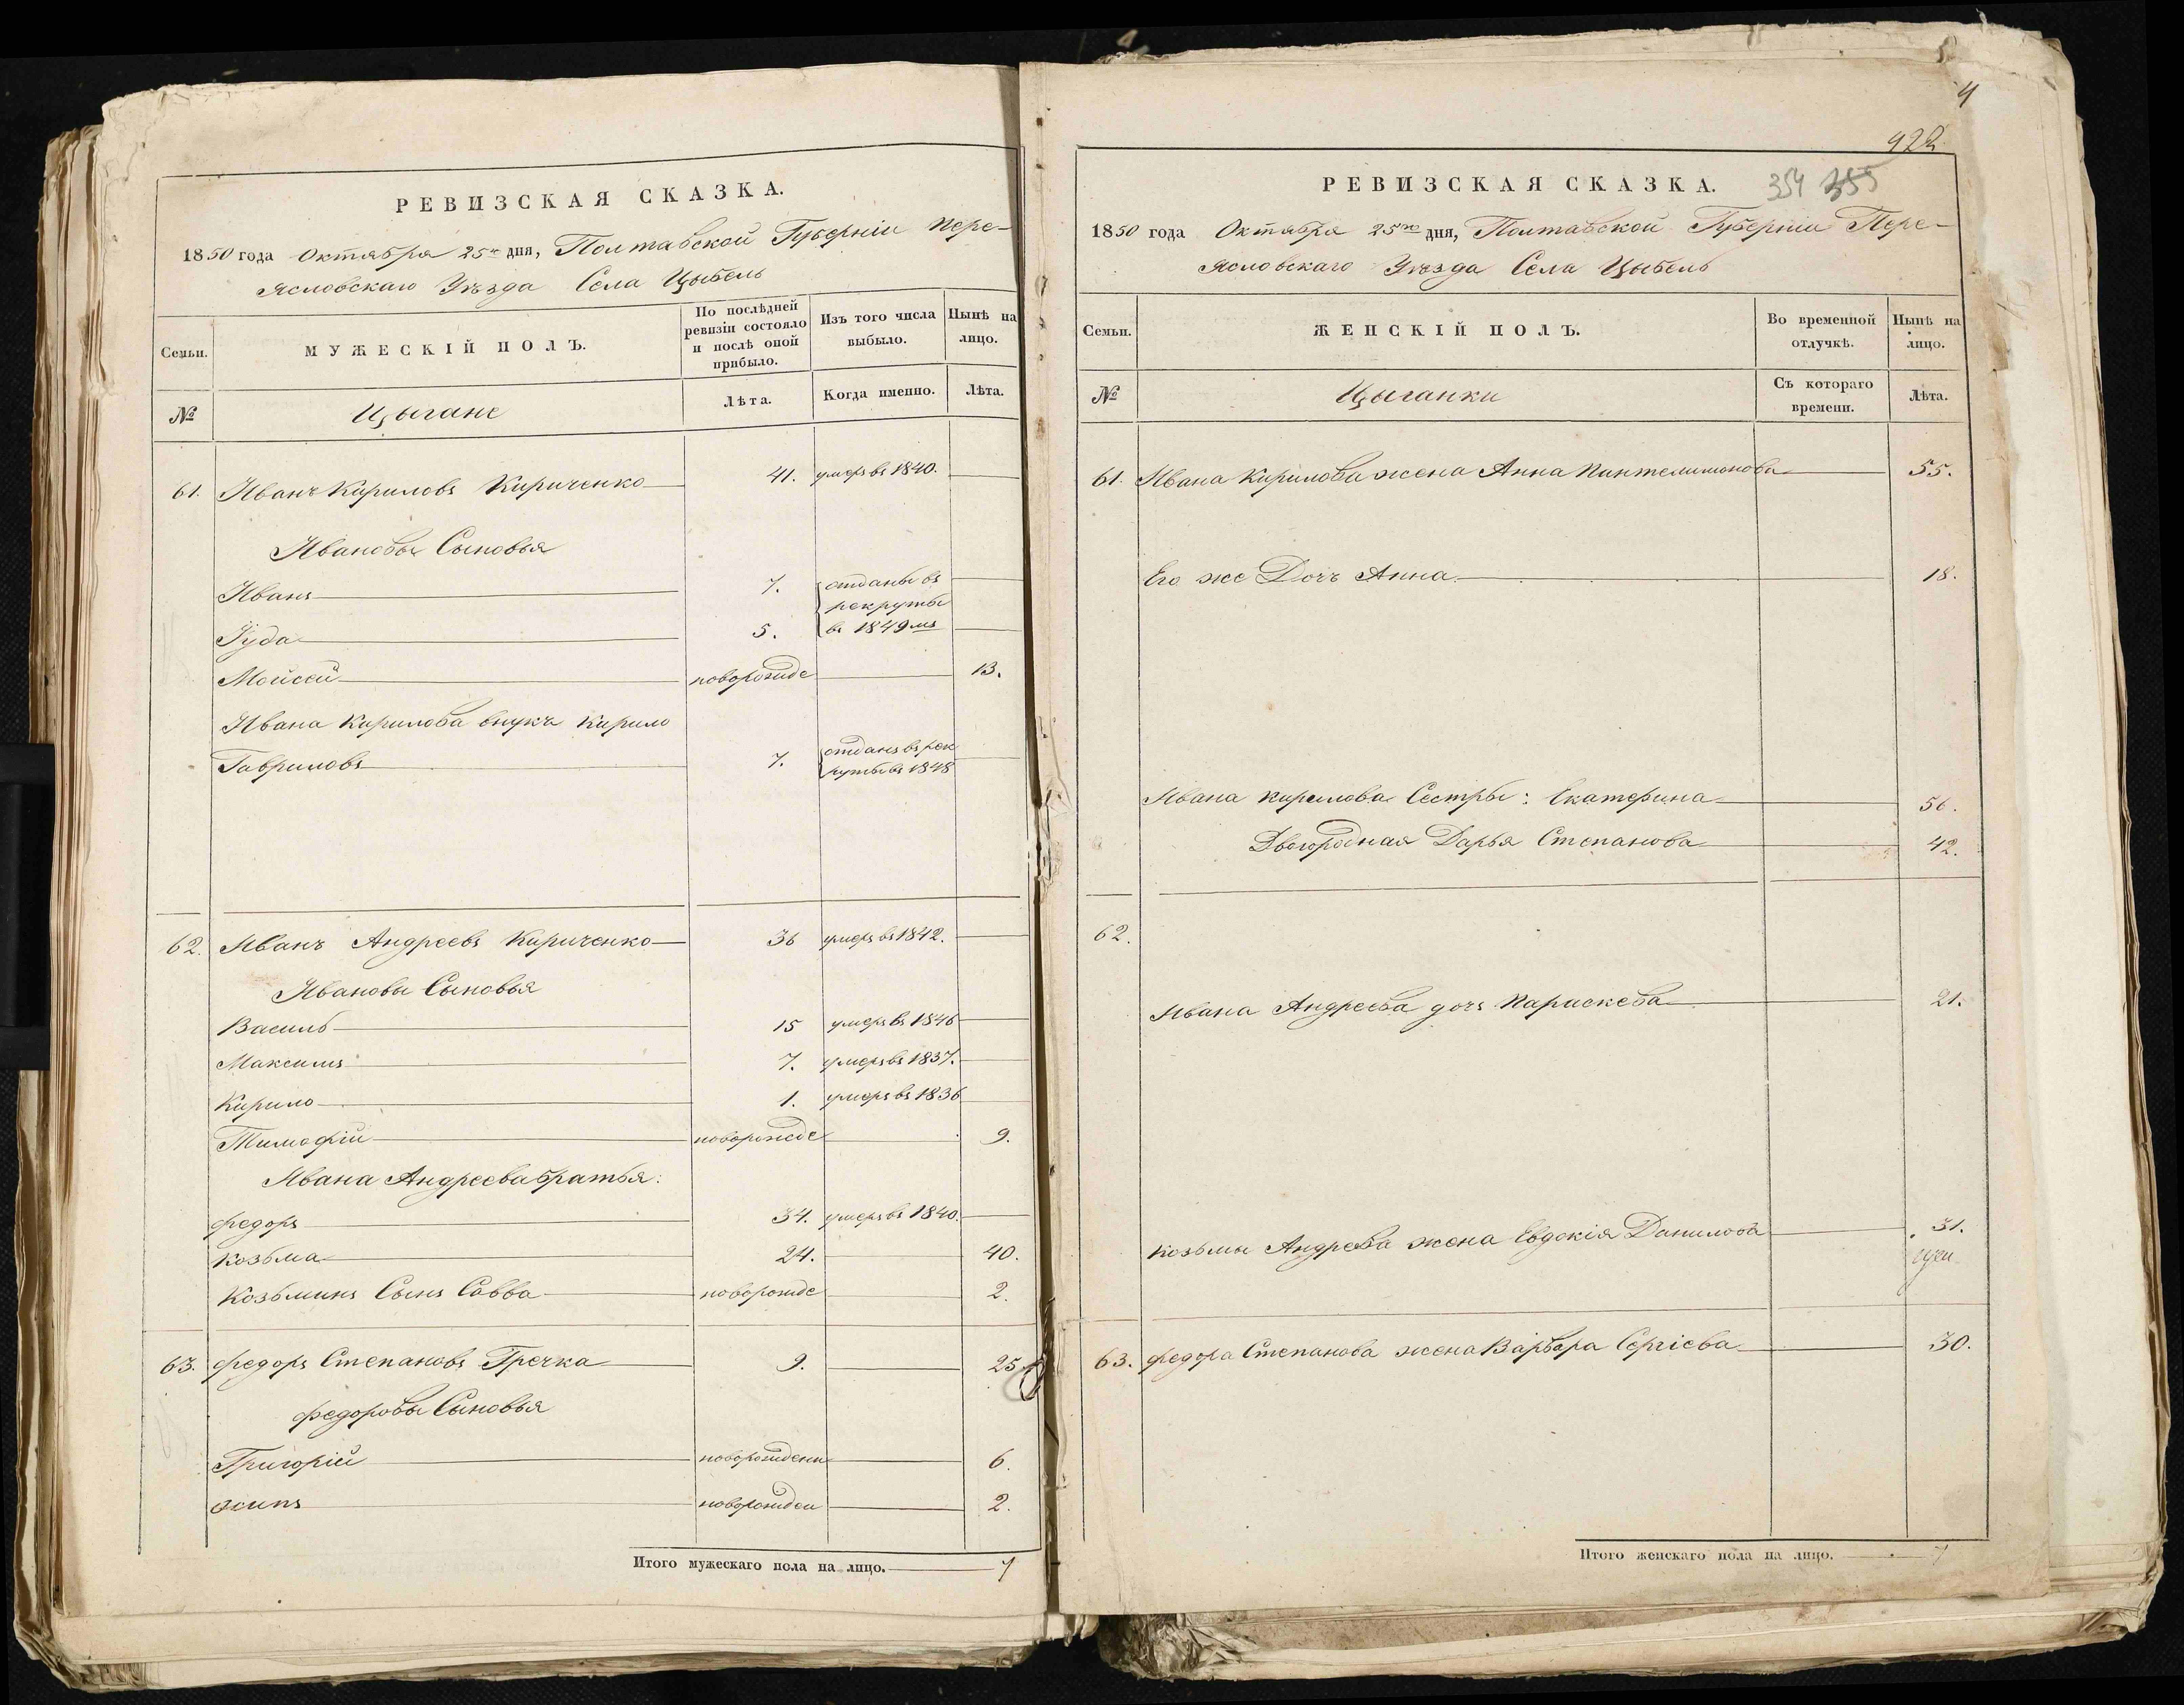 РЕВИЗСКАЯ СКАЗКА.
1850 года Октября 25го дня, Полтавской Губерніи Пере-
яславскаго Уѣзда Села Цыбель
Семьи.
МУЖЕСКІЙ ПОЛЪ.
По послѣдней
ревизіи состояло
и послѣ оной
прибыло.
Изъ того числа
выбыло.
Нынѣ на
лицо.
№
Цыгане
Лѣта.
Когда именно.
Лѣта.
61. Иванъ Кириловъ Кириченко 41. умеръ въ 1840.
Ивановы Сыновья
Иванъ 7. отданы въ
рекруты
Іуда 5. въ 1849мъ
Мойсей новорожде 13.
Ивана Кирилова внукъ Кирило
Гавриловъ 7. отданъ въ рек
руты въ 1848
62. Иванъ Андреевъ Кириченко 36 умеръ въ 1842.
Ивановы Сыновья
Василь 15 умеръ въ 1846
Максимъ 7. умеръ въ 1837.
Кирило 1. умеръ въ 1836
Тимофій новорожде 9.
Ивана Андреева братья:
Федоръ 34. умеръ въ 1840.
Козьма 24. 40.
Козьминъ Сынъ Савва новорожде 2.
63. Федоръ Степановъ Гречка 9. 25
Федоровы Сыновья
Григорій новорожденъ 6.
Осипъ новорожден 2.
Итого мужескаго пола на лицо. 7
4
922
РЕВИЗСКАЯ СКАЗКА. 354 355
1850 года Октября 25го дня, Полтавской Губерніи Пере-
яславскаго Уѣзда Села Цыбель
Семьи.
ЖЕНСКІЙ ПОЛЪ.
Во временной
отлучкѣ.
Нынѣ на
лицо.
№
Цыганки
Съ котораго
времени.
Лѣта.
61. Ивана Кирилова жена Анна Пантелимонова 55.
Его же Дочь Анна 18.
Ивана Кирилова Сестры: Екатерина 56.
Двогородная Дарья Степанова 42.
62.
Ивана Андреева дочь Парискева 21.
Козьмы Андреева жена Евдокія Данилова 31.
63. Федора Степанова жена Варвара Сергіева 30.
Итого женскаго пола на лицо. 7